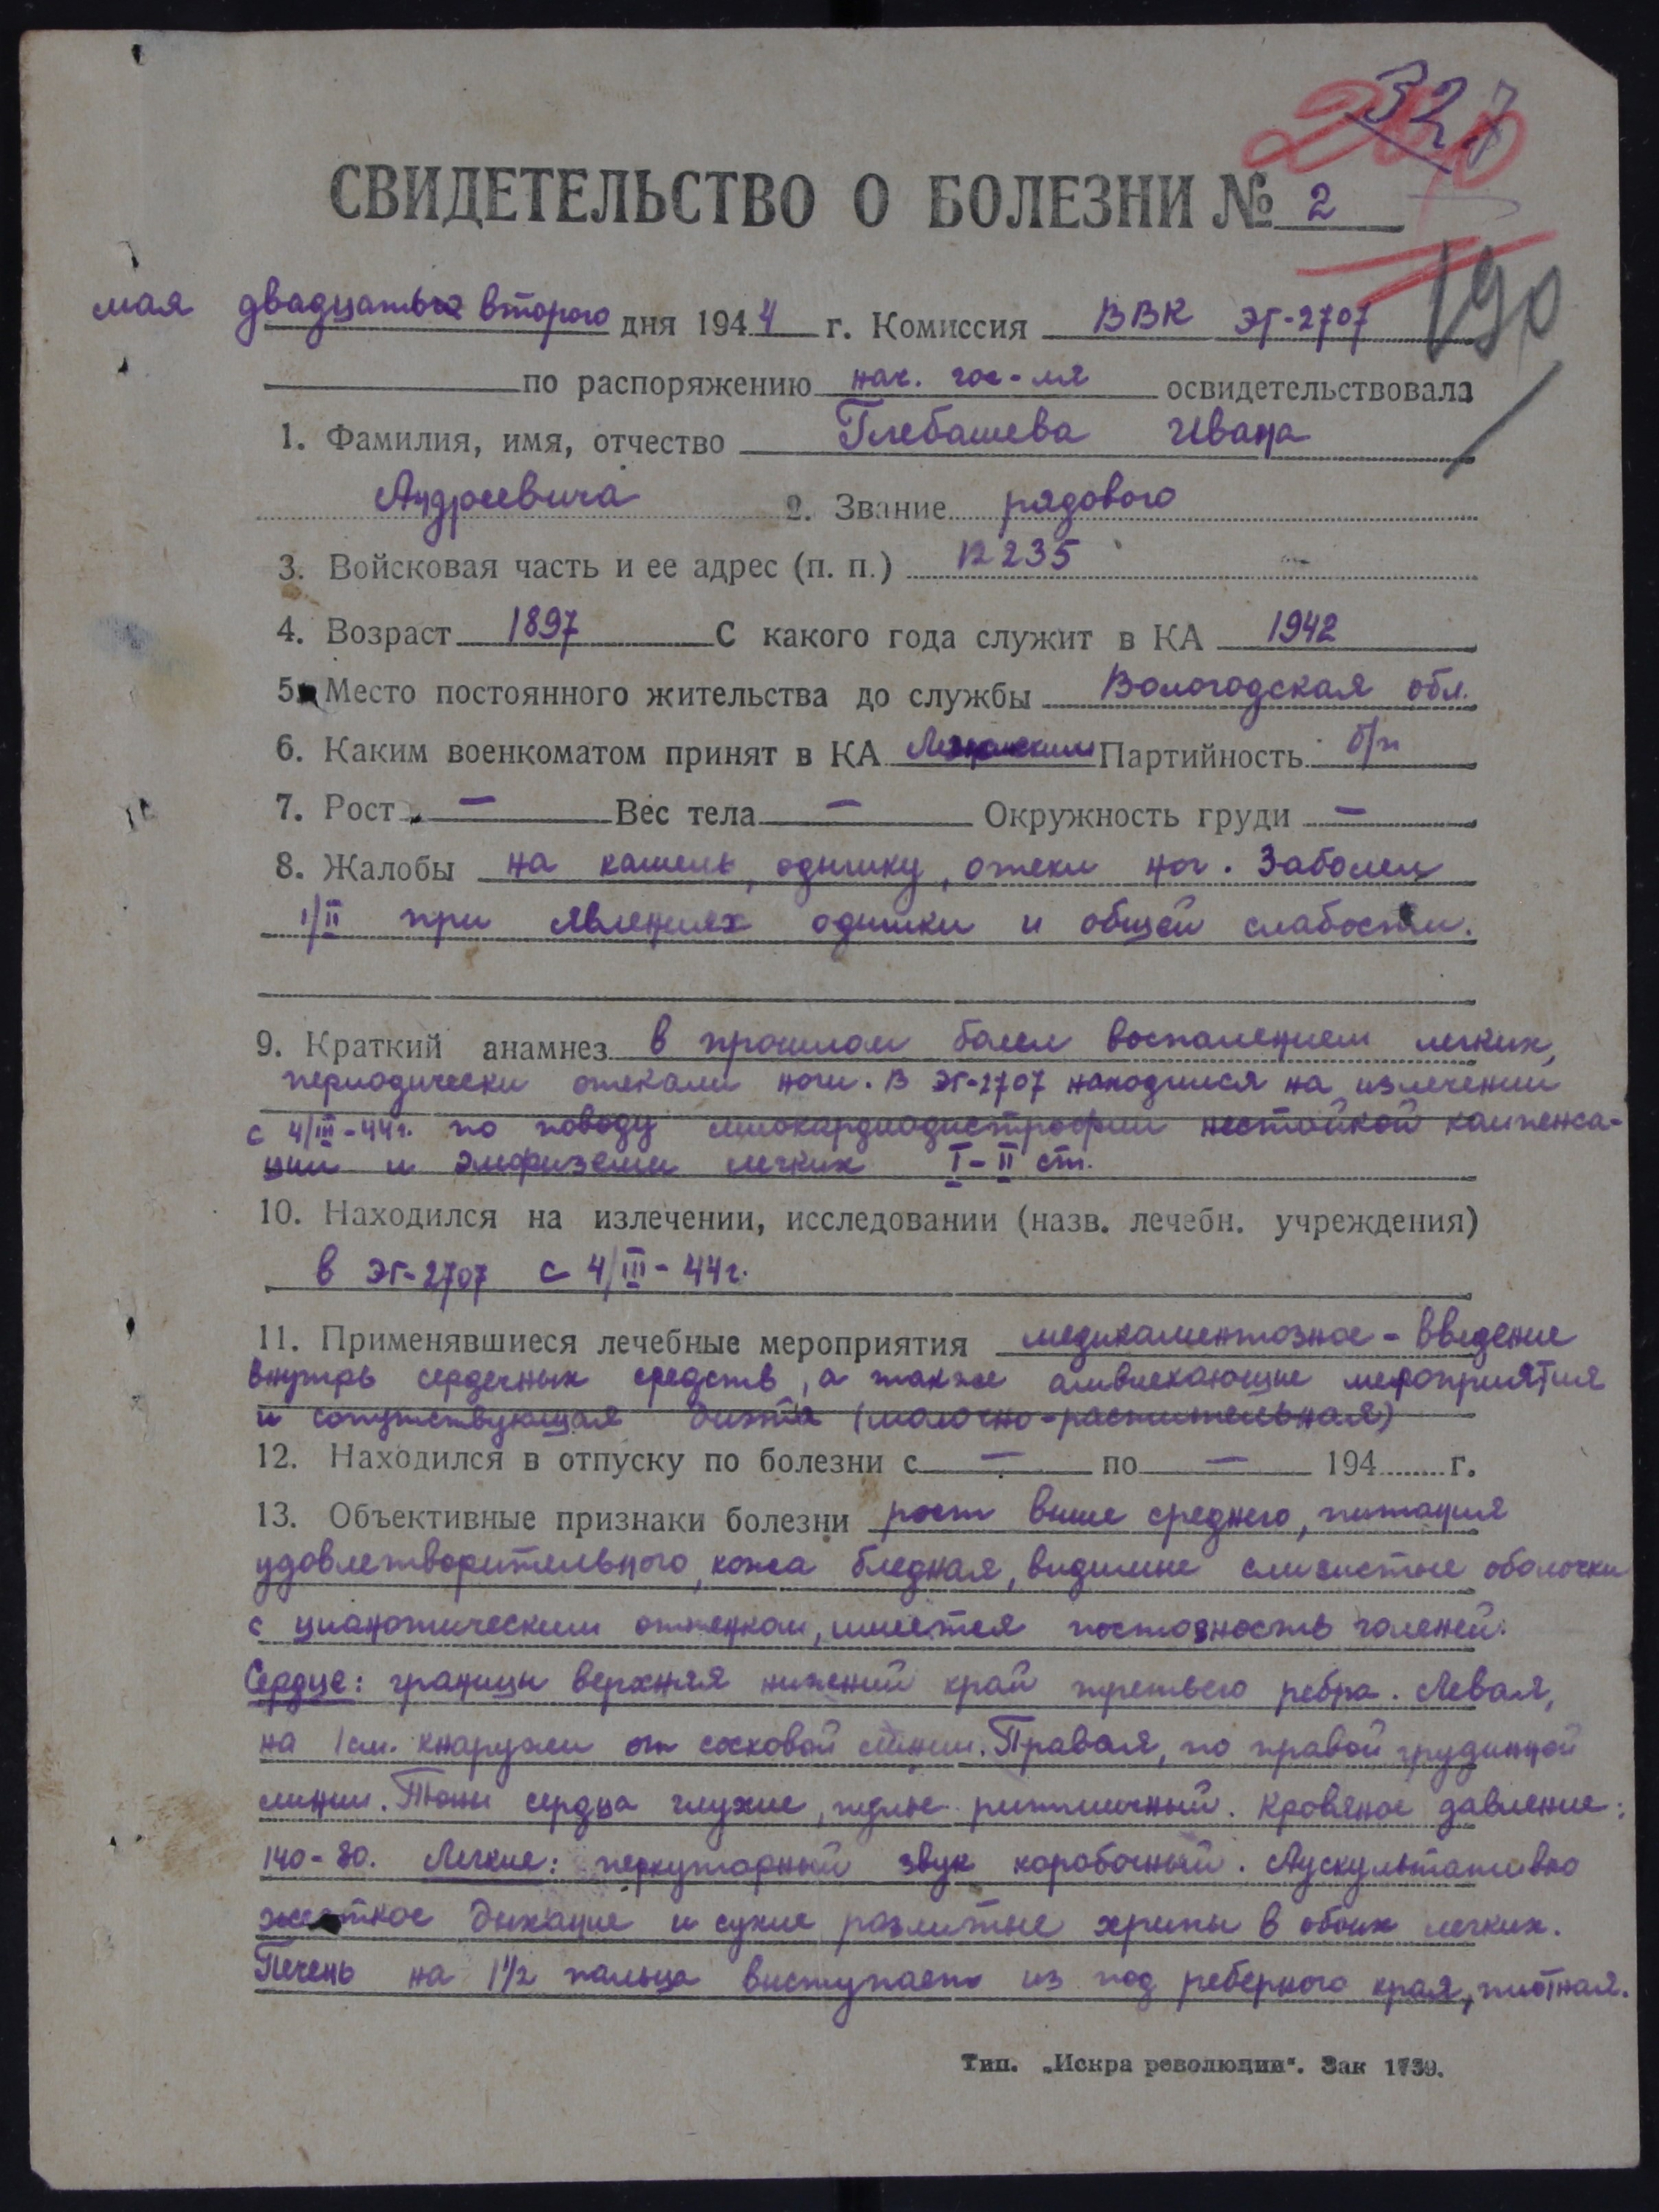 327
СВИДЕТЕЛЬСТВО О БОЛЕЗНИ № 2
190
мая двадцать второго дня 1944 г. Комиссия ВВК ЭГ-2707
по распоряжению нач. гос-ля освидетельствовала
1. Фамилия, имя, отчество Глебашева Ивана
Андреевича 2. Звание рядового
3. Войсковая часть и ее адрес (п. п.) 12235
4. Возраст 1897 С какого года служит в КА 1942
5. Место постоянного жительства до службы Вологодская обл.
6. Каким военкоматом принят в КА Партийность б/п
7. Рост — Вес тела — Окружность груди —
8. Жалобы на кашель, одышку, отеки ног. Заболел
1/II при явлениях одышки и общей слабости.
9. Краткий анамнез в прошлом болел воспалением легких,
периодически отекали ноги. В ЭГ-2707 находился на излечении
с 4/III-44г. по поводу миокардиодистрофии нестойкой компенса-
ции и эмфиземы легких I-II ст.
10. Находился на излечении, исследовании (назв. лечебн. учреждения)
в ЭГ-2707 с 4/III-44г.
11. Применявшиеся лечебные мероприятия медикаментозное - введение
внутрь сердечных средств, а также мероприятия
и сопутствующая диэта (молочно-растительная)
12. Находился в отпуску по болезни с — по — 194 г.
13. Объективные признаки болезни рост выше среднего, питания
удовлетворительного, кожа бледная, видимые слизистые оболочки
с цианотическим оттенком, имеется пастозность голеней.
Сердце: границы верхняя нижний край третьего ребра. Левая,
на 1 см. кнаружи от сосковой линии. Правая, по правой грудинной
линии. Тоны сердца глухие, пульс ритмичный. Кровяное давление:
140-80. Легкие: перкуторный звук коробочный. Аускультативно
жесткое дыхание и сухие разлитые хрипы в обоих легких.
Печень на 1 1/2 пальца выступает из под реберного края, плотная.
Тип. „Искра революции“. Зак 1739.